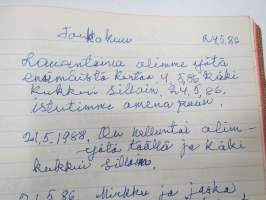 Toukokuu 24.5.86
Lauantaina olimme yötä
ensimäistä kertaa 4.5.86 käki
kukkui silloin. 24.5.86.
istutimme omena puun.
21.5.1988. Oli helluntai olim-
yötä täällä ja käki
kukkui silloin.
21.5.86. Minkku ja Jaska